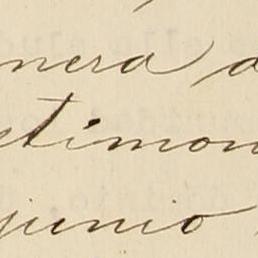 nera a
stimon
junio